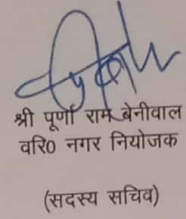 श्री पूर्णा राम बेनीवाल
वरि0 नगर नियोजक
(सदस्य सचिव)